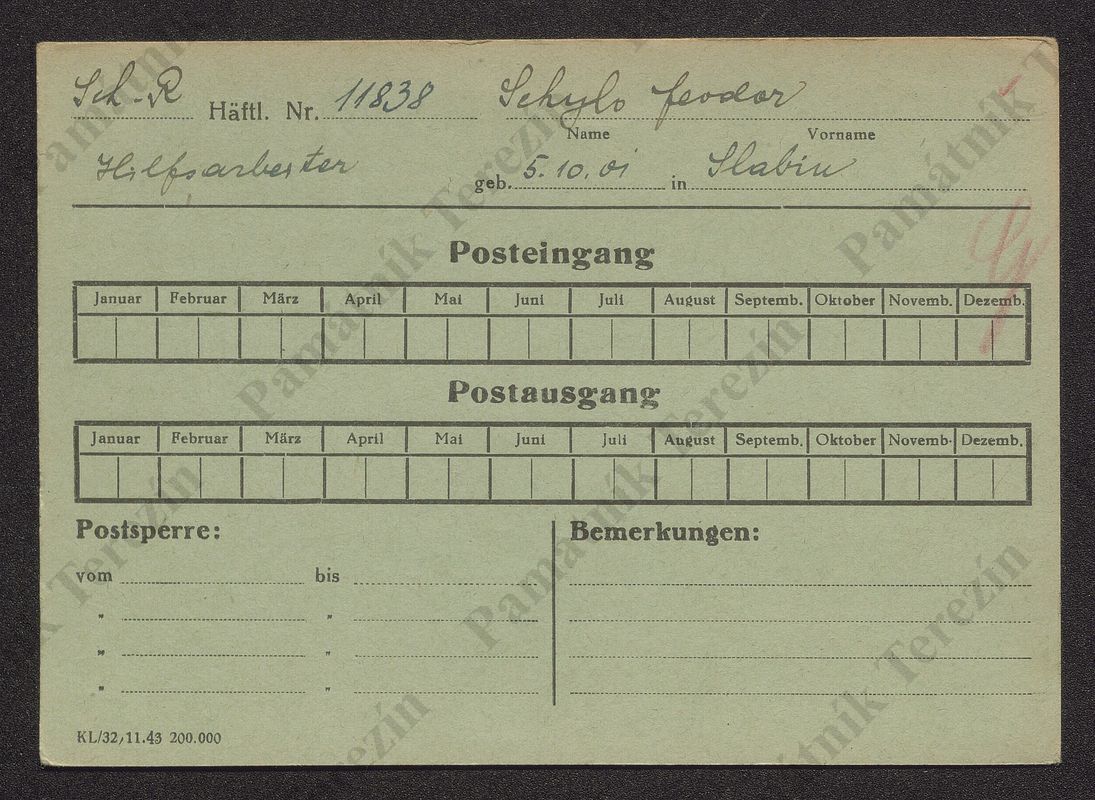 Sch-R Häftl. Nr. 11838 Schylo Feodor
Name Vorname
Hilfsarbeiter geb. 5.10.01 in Slabin
Posteingang
Januar Februar März April Mai Juni Juli August Septemb. Oktober Novemb. Dezemb.
Postausgang
Januar Februar März April Mai Juni Juli August Septemb. Oktober Novemb. Dezemb.
Postsperre: Bemerkungen:
vom bis
" "
" "
" "
KL/32/11.43 200.000
Památník Terezín